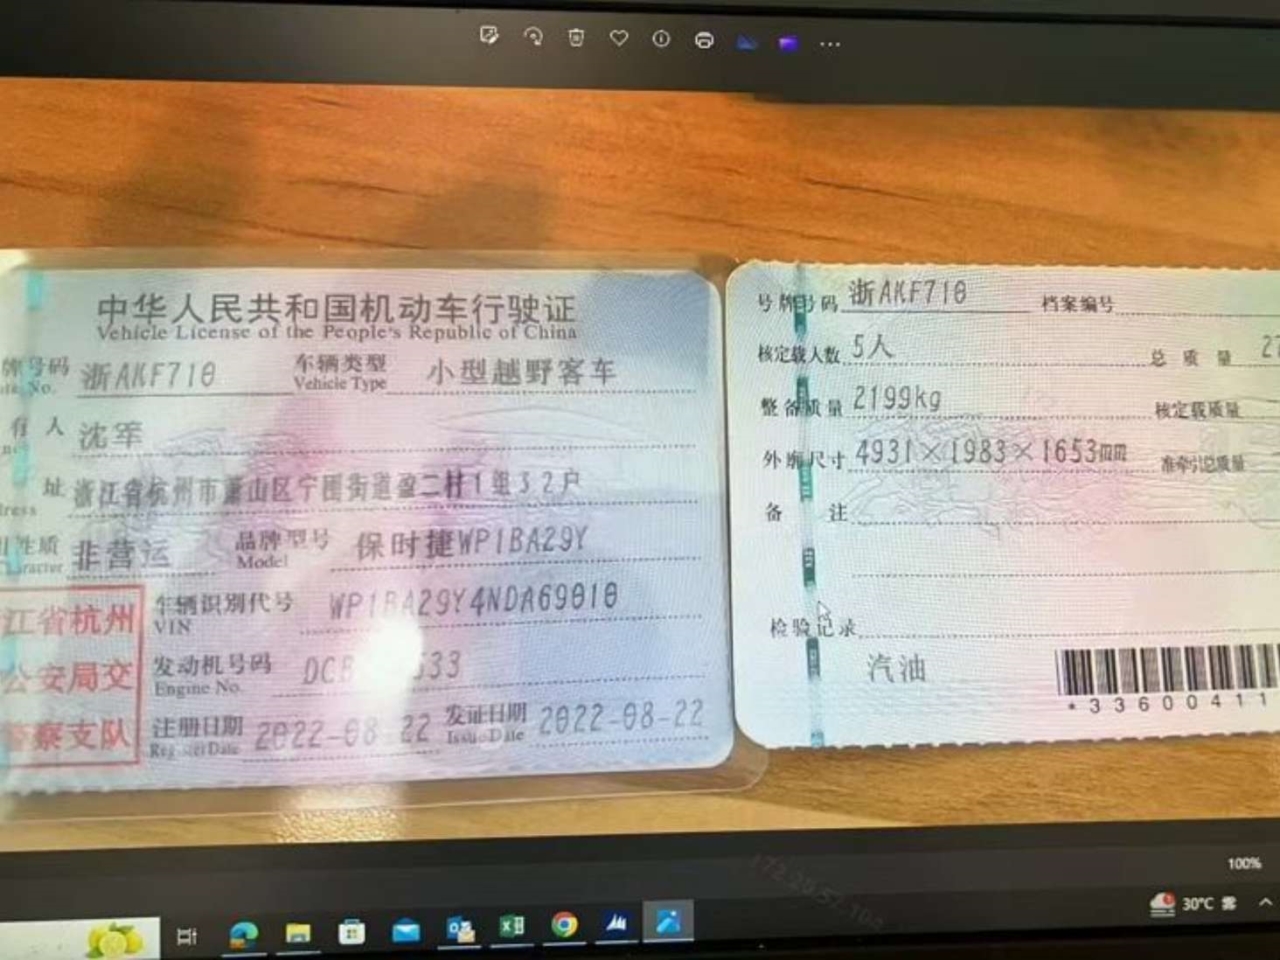 中华人民共和国机动车行驶证
Vehicle License of the People's Republic of China
牌号码 浙AKF710 车辆类型 小型越野客车
Vehicle Type
有人 沈军
址 浙江省杭州市萧山区宁围街道盈二村1组32户
性质 非营运 品牌型号 保时捷WP1BA29Y
Model
车辆识别代号 WP1BA29Y4NDA69010
VIN
发动机号码 DCB 533
Engine No.
注册日期 2022-08-22 发证日期 2022-08-22
Register Date Issue Date
江省杭州
公安局交
警察支队
号牌号码 浙AKF710 档案编号
核定载人数 5人 总质量 27
整备质量 2199kg 核定载质量
外廓尺寸 4931×1983×1653mm 准牵引总质量
备注
检验记录
汽油
*33600411
100%
30°C 雾